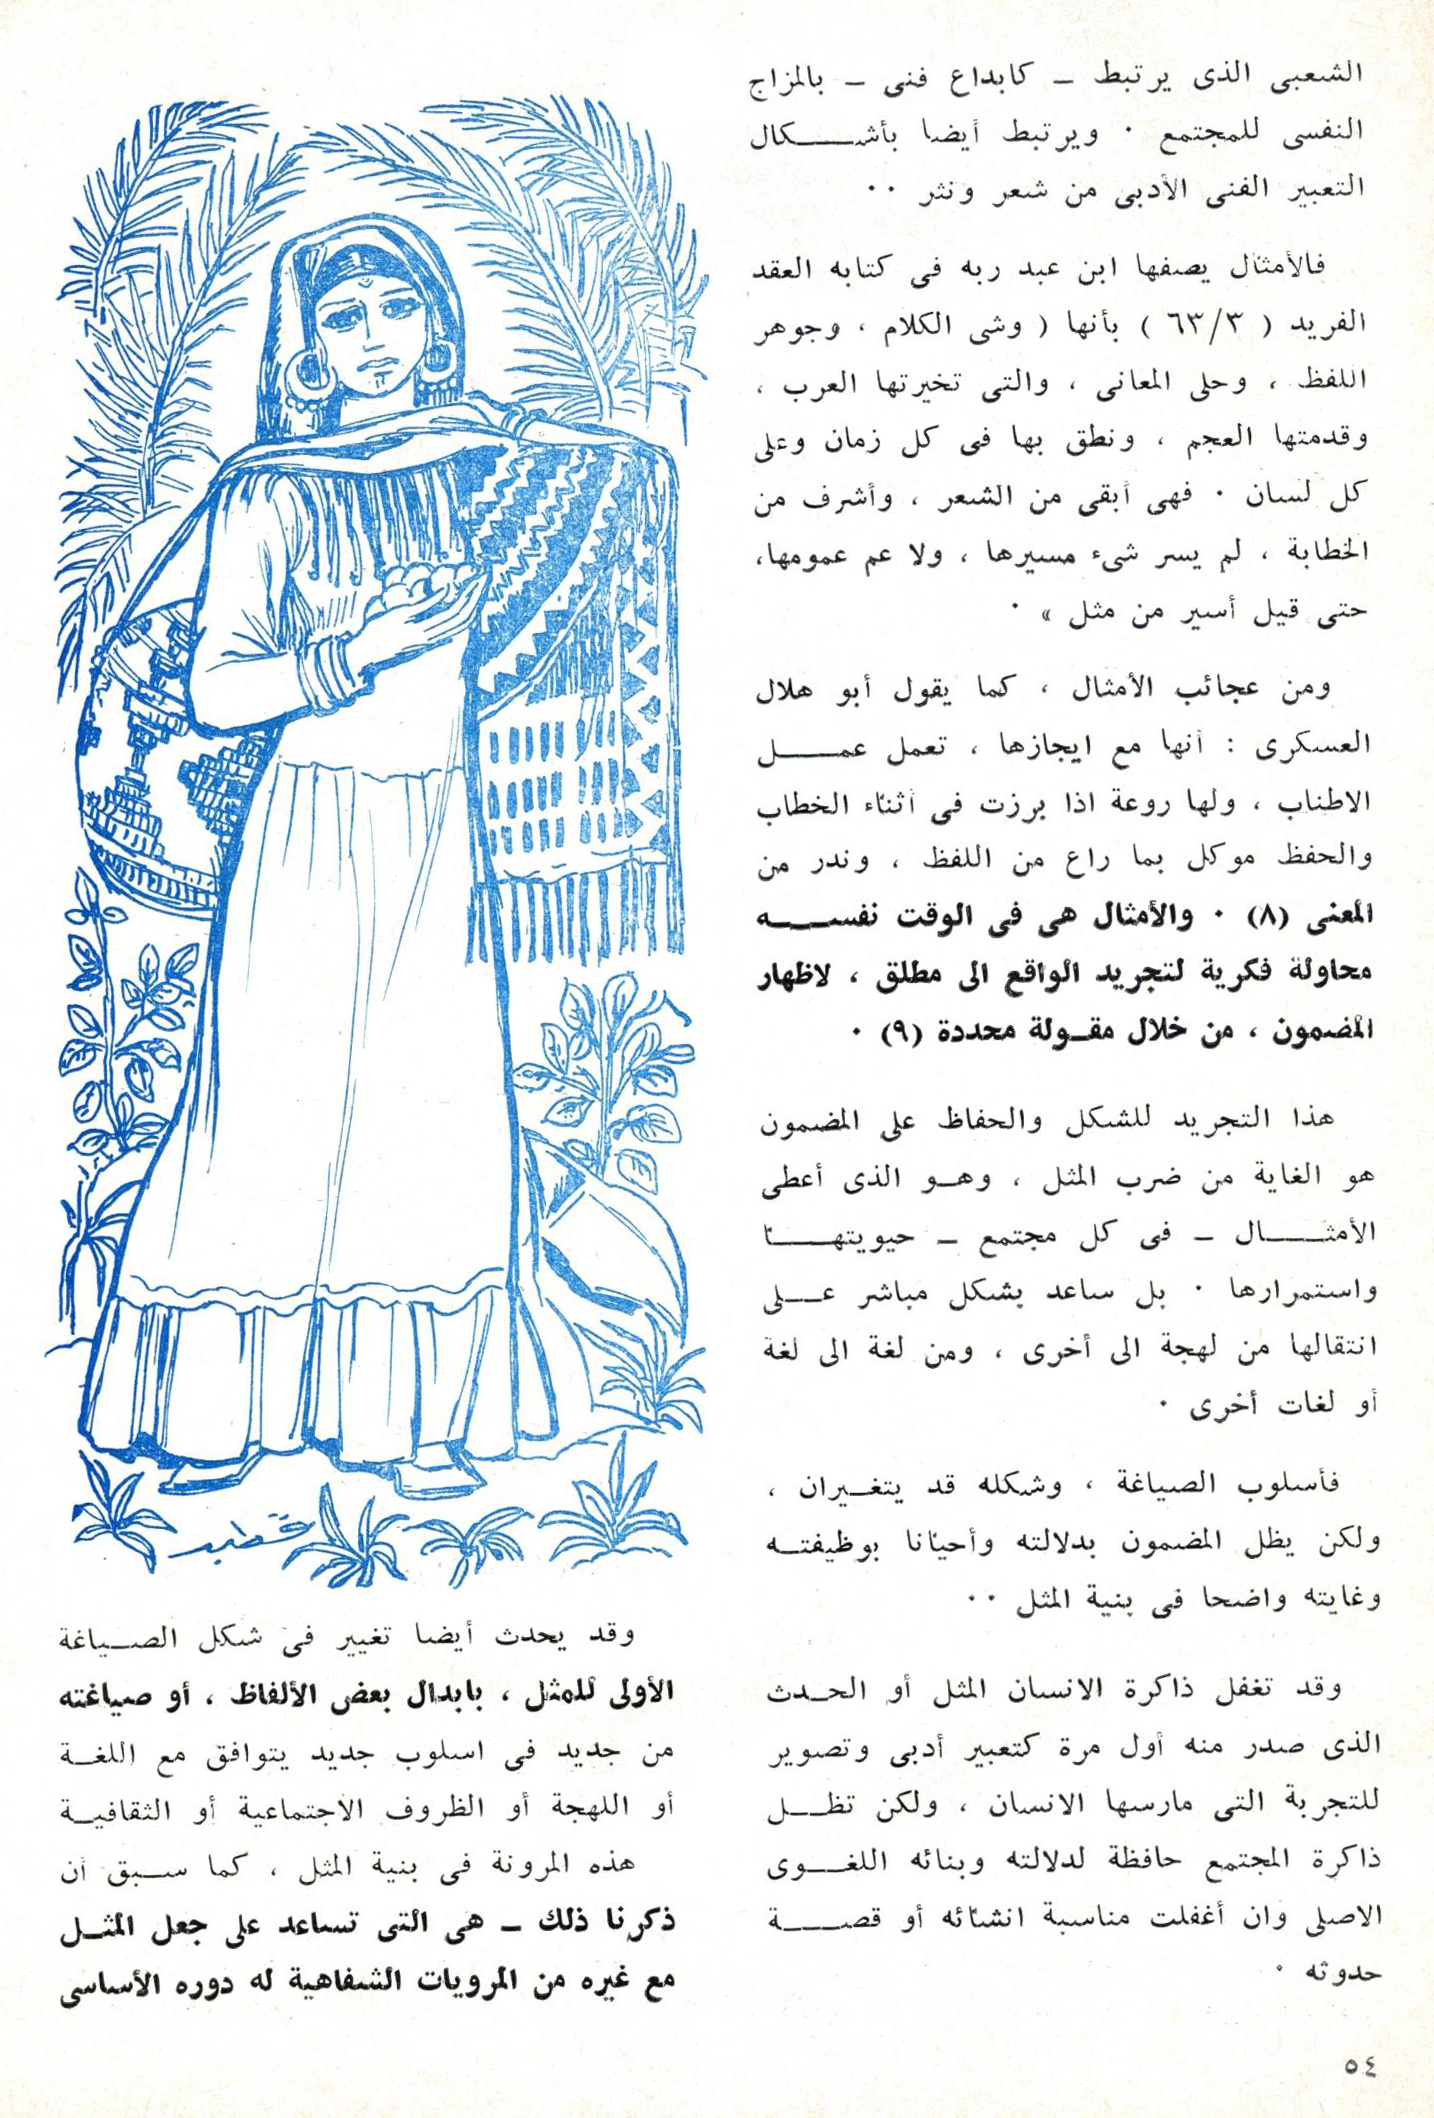 الشعبى الذى يرتبط ـ كابداع فنى ـ بالمزاج
النفسى للمجتمع ٠ ويرتبط أيضا بأشـــكال
التعبير الفنى الأدبى من شعر ونثر ٠٠
فالأمثال يصفها ابن عبد ربه فى كتابه العقد
الفريد ( ٦٣/٣ ) بأنها ( وشى الكلام ، وجوهر
اللفظ ، وحلى المعانى ، والتى تخيرتها العرب ،
وقدمتها العجم ، ونطق بها فى كل زمان وعلى
كل لسان ٠ فهى أبقى من الشعر ، وأشرف من
الخطابة ، لم يسر شىء مسيرها ، ولا عم عمومها،
حتى قيل أسير من مثل » ٠
ومن عجائب الأمثال ، كما يقول أبو هلال
العسكرى : أنها مع ايجازها ، تعمل عمـــل
الاطناب ، ولها روعة اذا برزت فى أثناء الخطاب
والحفظ موكل بما راع من اللفظ ، وندر من
المعنى (٨) ٠ والأمثال هى فى الوقت نفســـه
محاولة فكرية لتجريد الواقع الى مطلق ، لاظهار
المضمون ، من خلال مقـولة محددة (٩) ٠
هذا التجريد للشكل والحفاظ على المضمون
هو الغاية من ضرب المثل ، وهـو الذى أعطى
الأمثـــال ـ فى كل مجتمع ـ حيويتهـــا
واستمرارها ٠ بل ساعد بشكل مباشر عـــلى
انتقالها من لهجة الى أخرى ، ومن لغة الى لغة
أو لغات أخرى ٠
فأسلوب الصياغة ، وشكله قد يتغـيران ،
ولكن يظل المضمون بدلالته وأحيانا بوظيفتـه
وغايته واضحا فى بنية المثل ٠٠
وقد تغفل ذاكرة الانسان المثل أو الحـدث
الذى صدر منه أول مرة كتعبير أدبى وتصوير
للتجربة التى مارسها الانسان ، ولكن تظـــل
ذاكرة المجتمع حافظة لدلالته وبنائه اللغــوى
الاصلى وان أغفلت مناسبة انشائه أو قصـــة
حدوثه ٠
قطب
وقد يحدث أيضا تغيير فى شكل الصـياغة
الأولى للمثل ، بابدال بعض الألفاظ ، أو صياغته
من جديد فى اسلوب جديد يتوافق مع اللغـة
أو اللهجة أو الظروف الاجتماعية أو الثقافيـة
هذه المرونة فى بنية المثل ، كما سـبق أن
ذكرنا ذلك ـ هى التى تساعد على جعل المثـل
مع غيره من المرويات الشفاهية له دوره الأساسى
٥٤